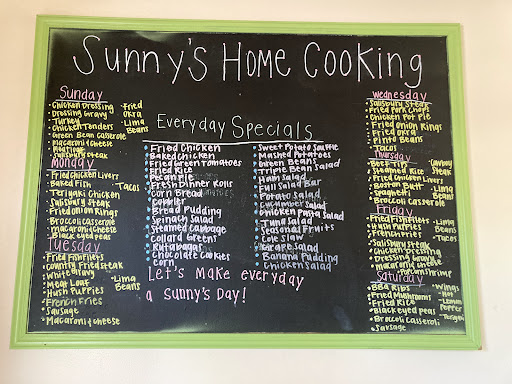 Sunny's Home Cooking
Sunday
• Chicken Dressing
• Dressing Gravy
• Turkey
• Chicken Tenders
• Green Bean Casserole
• Macaroni & Cheese
• Salisbury Steak
• Fried Okra
• Lima Beans
Monday
• Fried Chicken Livers
• Baked Fish
• Teriyaki Chicken
• Salisbury Steak
• Fried Onion Rings
• Broccoli Casserole
• Macaroni & Cheese
• Black eyed peas
• Tacos
Tuesday
• Fried Fish Filets
• Country Fried Steak
• White Gravy
• Meat Loaf
• Hush Puppies
• French Fries
• Sausage
• Macaroni & Cheese
• Lima Beans
Everyday Specials
• Fried Chicken
• Baked Chicken
• Fried Green Tomatoes
• Fried Rice
• Pecan Pie
• Fresh Dinner Rolls
• Corn Bread
• Cobbler
• Bread Pudding
• Spinach Salad
• Steamed Cabbage
• Collard Greens
• Rutabagas
• Chocolate Cookies
• Corn
• Sweet Potato Souffle
• Mashed Potatoes
• Green Bean Salad
• Triple Bean Salad
• Ham Salad
• Full Salad Bar
• Potato Salad
• Cucumber Salad
• Chicken Pasta Salad
• Tuna Salad
• Seasonal Fruits
• Cole Slaw
• Grape Salad
• Banana Pudding
• Chicken Salad
Let's make everyday
a Sunny's Day!
Wednesday
• Salisbury Steak
• Fried Pork Chops
• Chicken Pot Pie
• Fried Onion Rings
• Fried Okra
• Pinto Beans
• Tacos
Thursday
• Beef Tips
• Steamed Rice
• Fried Chicken Livers
• Boston Butt
• Spaghetti
• Broccoli Casserole
• Cowboy Steak
• Lima Beans
Friday
• Fried Fish Filets
• Hush Puppies
• French Fries
• Salisbury Steak
• Chicken Dressing
• Dressing Gravy
• Macaroni & Cheese
• Popcorn Shrimp
• Lima Beans
• Tacos
Saturday
• BBQ Ribs
• Fried Mushrooms
• Fried Rice
• Black eyed peas
• Broccoli Casseroli
• Sausage
• Wings
- Hot
- Lemon Pepper
- Teriyaki